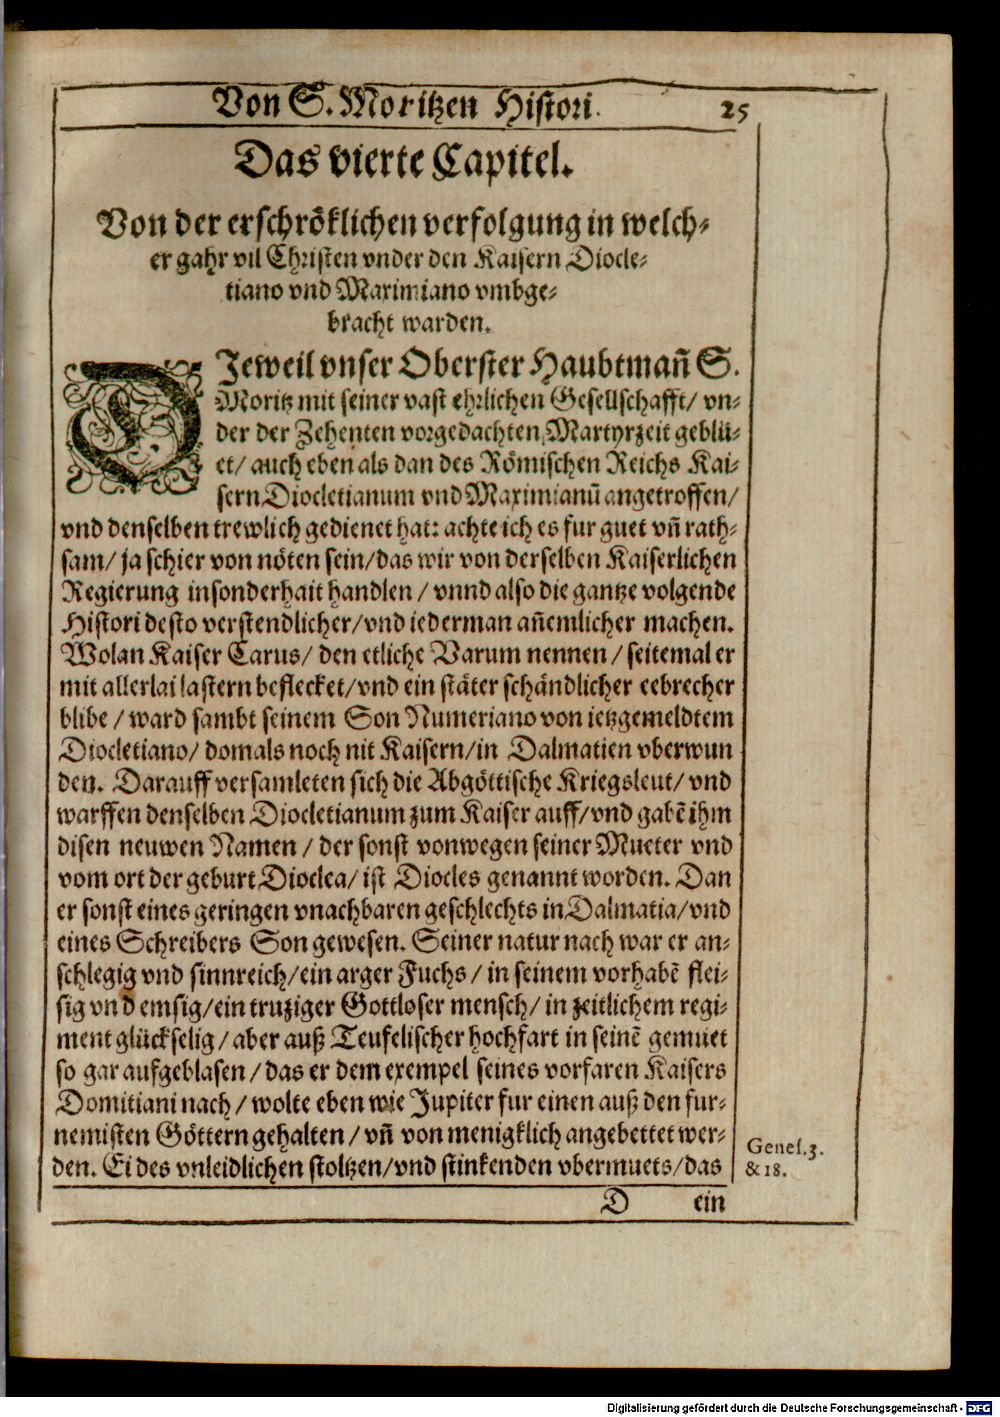 Von S. Moritzen Histori. 25
Das vierte Capitel.
Von der erschröklichen verfolgung in welch-
er gahr vil Christen vnder den Kaisern Diocle-
tiano vnd Maximiano vmbge-
bracht warden.
DJeweil vnser Oberster Haubtmañ S.
Moritz mit seiner vast ehrlichen Gesellschafft/ vn-
der der Zehenten vorgedachten Martyrzeit geblü-
et/ auch eben als dan des Römischen Reichs Kai-
sern Diocletianum vnd Maximianũ angetroffen/
vnd denselben trewlich gedienet hat: achte ich es fur guet vñ rath-
sam/ ja schier von nöten sein/das wir von derselben Kaiserlichen
Regierung insonderhait handlen / vnnd also die gantze volgende
Histori desto verstendlicher/vnd iederman añemlicher machen.
Wolan Kaiser Carus/ den etliche Varum nennen / seitemal er
mit allerlai lastern beflecket/vnd ein stäter schändlicher eebrecher
blibe / ward sambt seinem Son Numeriano von ietzgemeldtem
Diocletiano/ domals noch nit Kaisern/in Dalmatien vberwun
den. Darauff versamleten sich die Abgöttische Kriegsleut/ vnd
warffen denselben Diocletianum zum Kaiser auff/vnd gabẽ ihm
disen neuwen Namen / der sonst vonwegen seiner Mueter vnd
vom ort der geburt Dioclea/ ist Diocles genannt worden. Dan
er sonst eines geringen vnachbaren geschlechts in Dalmatia/vnd
eines Schreibers Son gewesen. Seiner natur nach war er an-
schlegig vnd sinnreich/ein arger Fuchs / in seinem vorhabẽ flei-
sig vnd emsig/ein truziger Gottloser mensch/ in zeitlichem regi-
ment glückselig / aber auß Teufelischer hochfart in seinẽ gemuet
so gar aufgeblasen / das er dem exempel seines vorfaren Kaisers
Domitiani nach / wolte eben wie Jupiter fur einen auß den fur-
nemisten Göttern gehalten / vñ von menigklich angebettet wer-
den. Ei des vnleidlichen stoltzen/vnd stinkenden vbermuets/das
Genes. 3.
& 18.
D ein
Digitalisierung gefördert durch die Deutsche Forschungsgemeinschaft - DFG